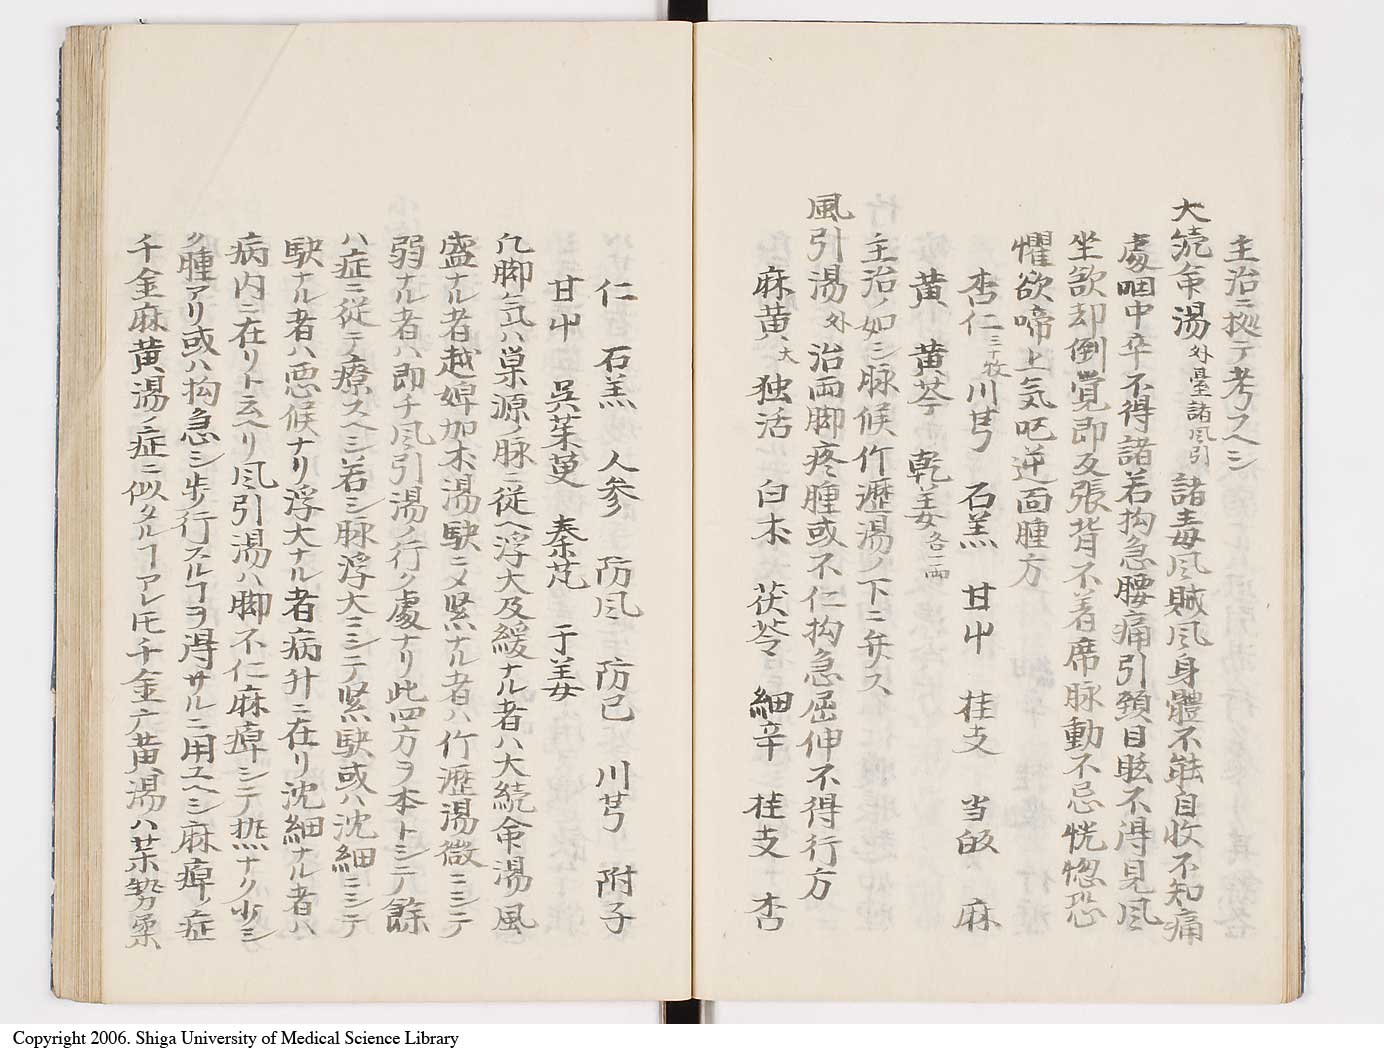 主治ニ拠テ考フヘシ
大続命湯外臺諸風引 諸毒風賊風身體不能自收不知痛
處咽中卒不得諸若拘急腰痛引頚目眩不得見風
坐欲却倒覚即反張背不着席脉動不忌恍惚恐
懼欲啼上気呕逆面腫方
杏仁三十枚 川芎 石羔 甘艸 桂支 当皈 麻
黄 黄芩 乾姜各二両
主治ノ如シ脉候竹瀝湯ノ下ニ弁ス
風引湯外 治両脚疼腫或不仁拘急屈伸不得行方
麻黄大 独活 白朮 茯苓 細辛 桂支 杏
仁 石羔 人参 防風 防已 川芎 附子
甘艸 呉茱萸 秦芃 于姜
凢脚気ハ巣源ノ脉ニ従ヘ浮大及緩ナル者ハ大続命湯風
盛ナル者越婢加朮湯駃ニメ緊ナル者ハ竹瀝湯微ニシテ
弱ナル者ハ即チ風引湯ノ行ク處ナリ此四方ヲ本トシテ餘
ハ症ニ従テ療スヘシ若シ脉浮大ニシテ緊駃或ハ沈細ニシテ
駃ナル者ハ悪候ナリ浮大ナル者病升ニ在リ沈細ナル者ハ
病内ニ在リト云ヘリ風引湯ハ脚不仁麻痺シテ熱ナク少シ
ク腫アリ或ハ拘急シ歩行スルヿヲ得サルニ用ユヘシ麻痺ノ症
千金麻黄湯ノ症ニ似タルヿアレ𪜈千金ノ麻黄湯ハ某勢柔